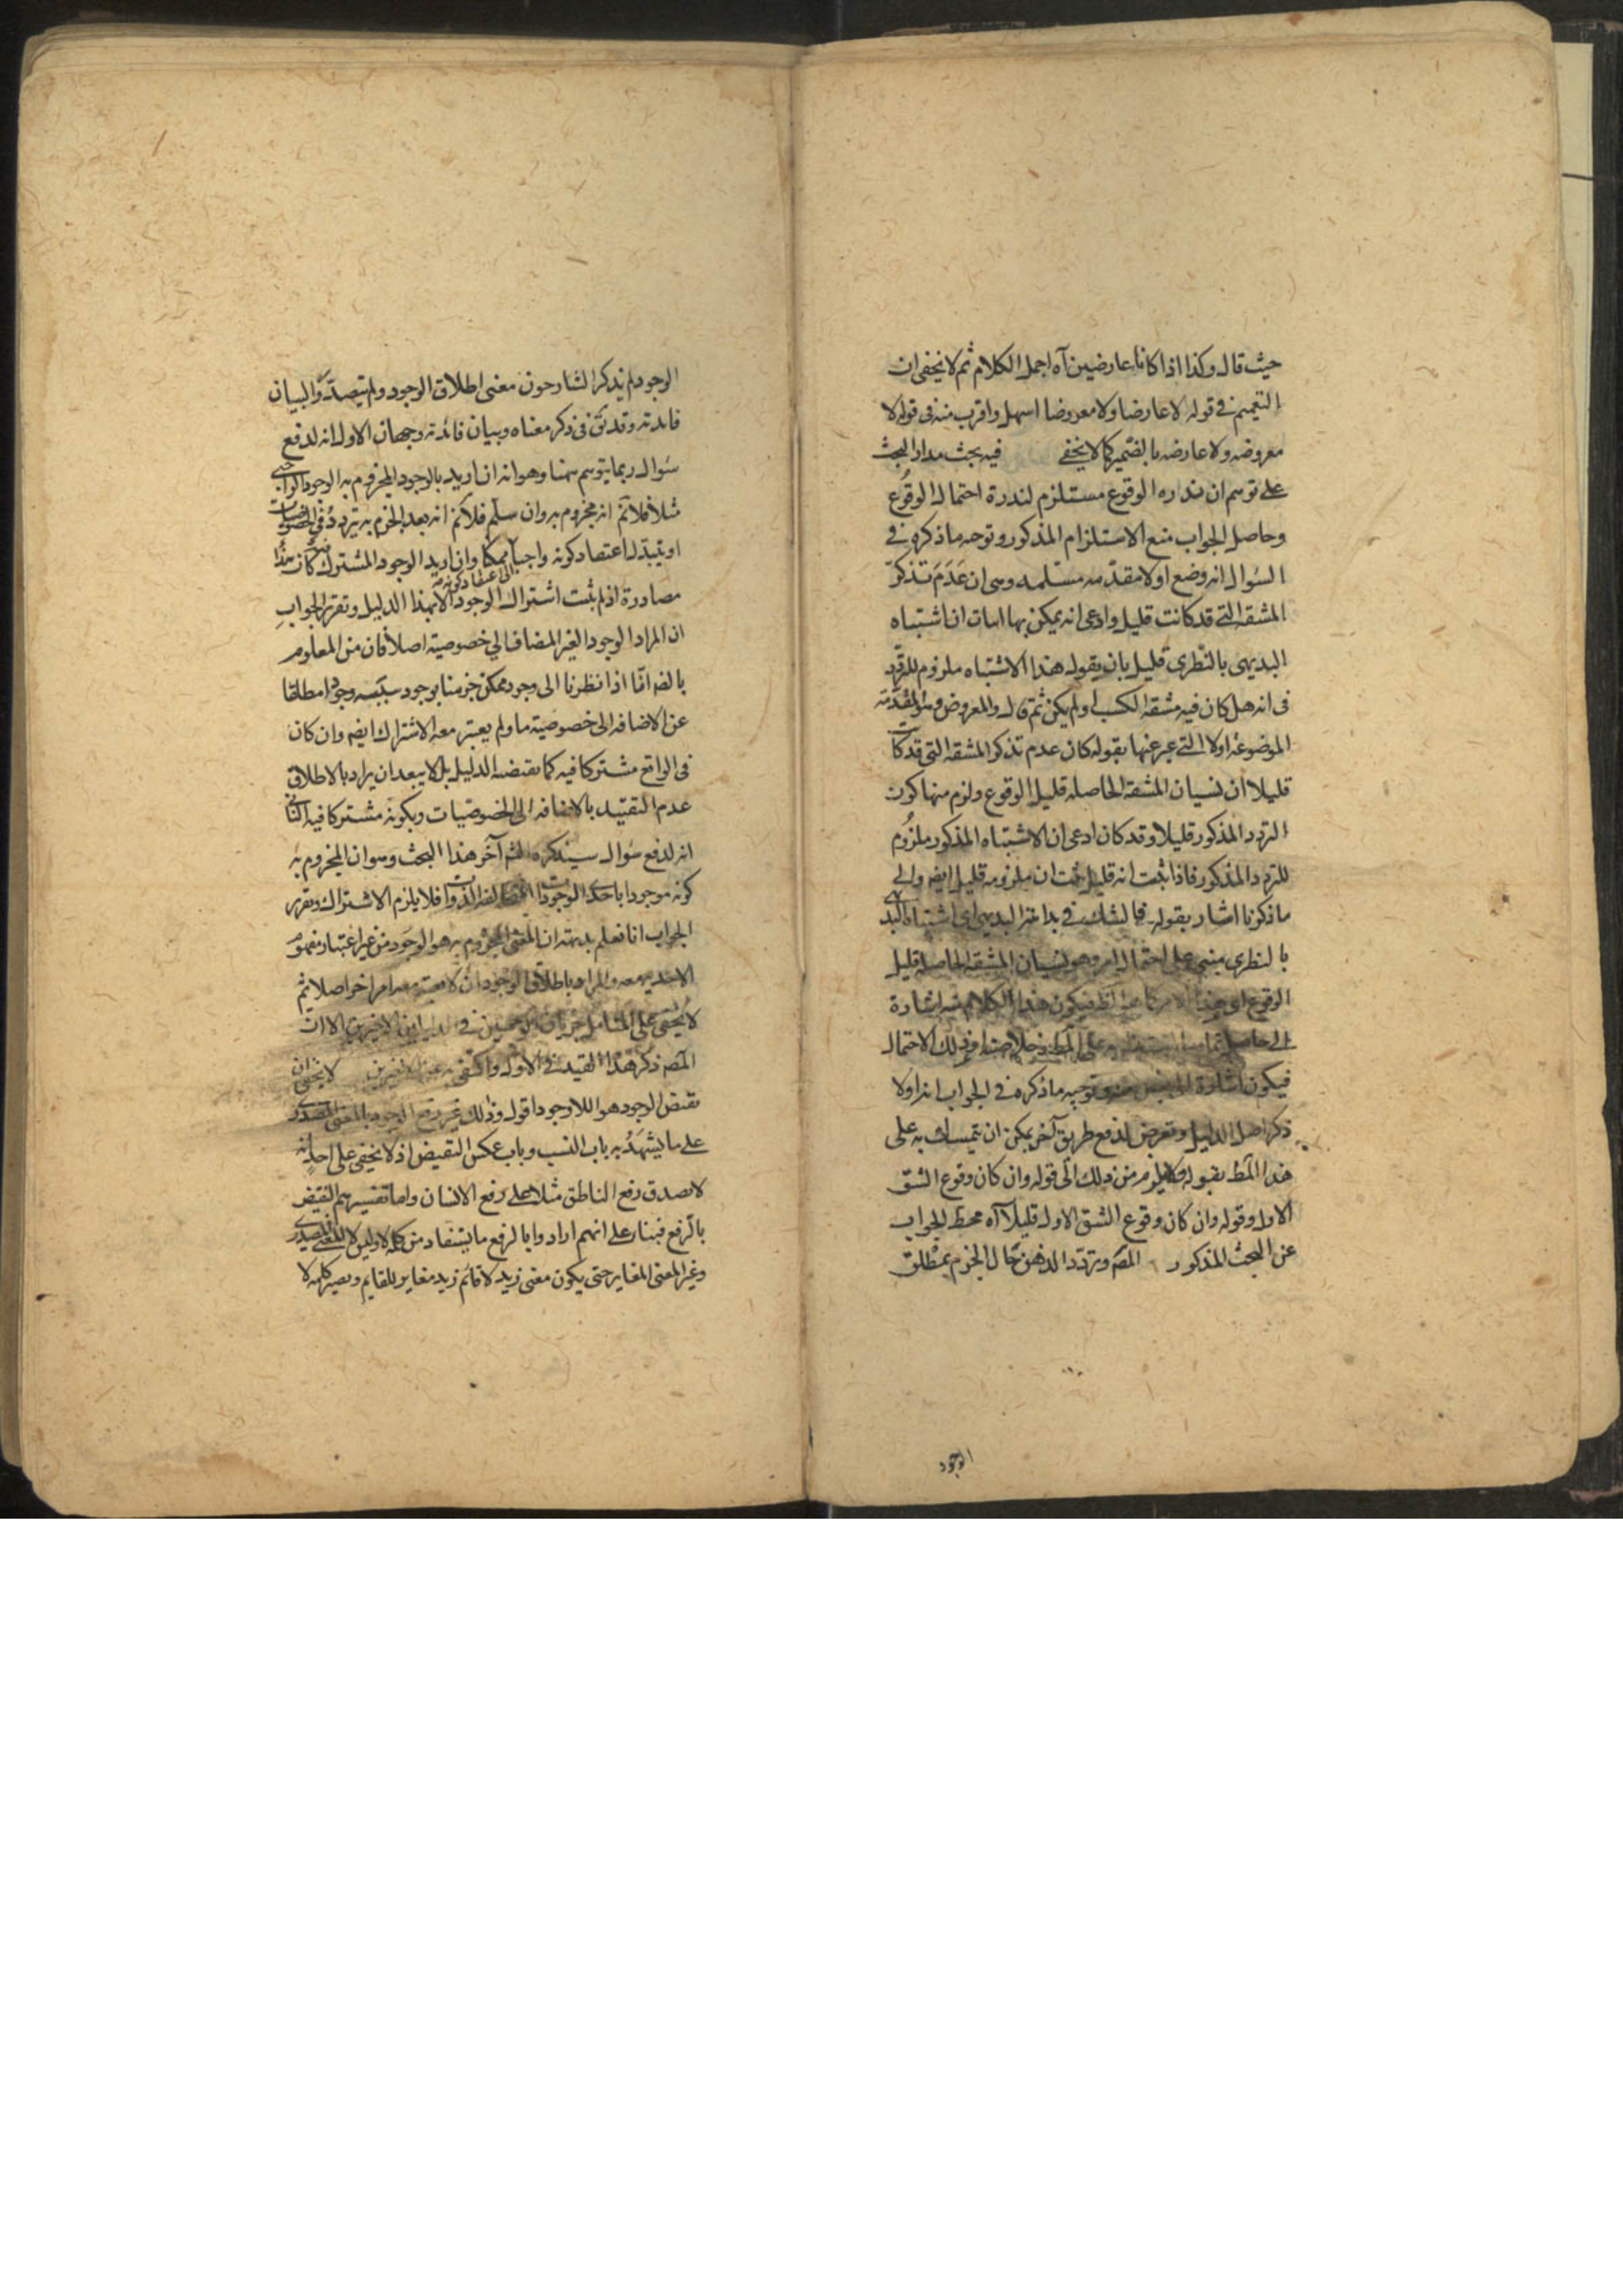 حيث قال وكذا اذا كانا عارضين آه اجمل الكلام ثم لا يخفى ان
التعميم في قوله لا عارضا ولا معروضا اسهل واقرب منه في قوله لا
معروضه ولا عارضه بالضمير كما لا يخفى فيه بحث مدار البحث
على توهم ان ندره الوقوع مستلزم لندرة احتمال الوقوع
وحاصل الجواب منع الاستلزام المذكور وتوجه ما ذكره في
السؤال انه وضع اولا مقدمه مسلمه وهى ان عدم تذكر
المشقه التي قد كانت قليل وادعى انه يمكن بها اثبات ان اشتباه
البديهى بالنظرى قليل بان يقوله هذا الاشتباه ملزوم للتردد
فى انه هل كان فيه مشقه الكسب او لم يكن ثم قال والمعروض وهو المقدمه
الموضوعه اولا التي عبر عنها بقوله كان عدم تذكر المشقه التى قد كانت
قليلا ان نسيان المشقه الحاصله قليل الوقوع ولزم منها كون
التردد المذكور قليلا وقد كان ادعى ان الاشتباه المذكور ملزوم
للتردد المذكور فاذا ثبت انه قليل ثبت ان ملزومه قليل ايضا والى
ما ذكرنا اشار بقوله فالشك في بداهة البديهى اى اشتباه البديهى
بالنظرى مبنى على احتمال امر وهو نسيان المشقه الحاصله قليل
الوقوع اى هذا فيكون هذا الكلام منه اشارة
الى حاصل على المط وخلاصته وذلك الاحتمال
فيكون اشارة وتوجيه ما ذكره في الجواب انه اولا
ذكر اصل الدليل وتعرض لدفع طريق آخر يمكن ان يتمسك به على
هذا المط بقوله ولا يلزم من ذلك الى قوله وان كان وقوع الشق
الاول وقوله وان كان وقوع الشق الاول قليلا آه محط الجواب
عن البحث المذكور المصـ وتردد الذهن حال الجزم بمطلق
الوجود
الوجود لم يذكر الشارحون معنى اطلاق الوجود ولم يتصدوا لبيان
فائدته وقد فى ذكر معناه وبيان فائدته وجهان الاول انه لدفع
سؤال ربما يتوهم ههنا وهو انه ان اريد بالوجود المجزوم به الوجود الواجبى
مثلا فلا نم انه مجزوم به وان سلم فلا نم انه بعد الجزم به يتردد في الخصوصيات
او يتبدل اعتقاد كونه واجبا ممكنا وان اريد الوجود المشترك كان هذا
الى اعتقاد كونه
مصادرة اذ لم يثبت اشتراك الوجود الا بهذا الدليل وتقرير الجواب
ان المراد الوجود الغير المضاف الى خصوصية اصلا فان من المعلوم
بالضـ انا اذا نظرنا الى وجود ممكن جزمنا بوجود سببه وجودا مطلقا
عن الاضافه الى خصوصية ما ولم يعتبر معه الاشتراك ايضا وان كان
فى الواقع مشتركا فيه كما يقتضيه الدليل بل لا يبعد ان يراد بالاطلاق
عدم التقييد بالاضافه الى الخصوصيات وبكونه مشتركا فيه الثانى
انه لدفع سؤال سيذكره الشـ آخر هذا البحث وهو ان المجزوم به
كونه موجودا باحد الوجودات المتخالفه الذوات فلا يلزم الاشتراك وتقرير
الجواب انا نعلم بديهته ان المعنى المجزوم به هو الوجود من غير اعتبار مفهوم
الاحديه معه والمراد باطلاق الوجود ان لا يعتبر معه امر اخر اصلا ثم
لا يخفى على المتامل جريان الوجهين في الدليلين الاخيرين الا ان
المصـ ذكر هذا القيد في الاول واكتفى به عن الاخيرين لا يخفى ان
نقيض الوجود هو اللا وجود اقول وذلك غير رفع الوجود بالمعنى المصدرى
على ما يشهد به باب النسب وباب عكس النقيض اذ لا يخفى على احد انه
لا يصدق رفع الناطق مثلا على رفع الانسان واما تفسيرهم النقيض
بالرفع فبناء على انهم ارادوا بالرفع ما يستفاد من كلمة لا وليس لا للمعنى المصدرى
وغير المعنى المغاير حتى يكون معنى زيد لا قائم زيد مغاير للقايم ويصير كلمه لا